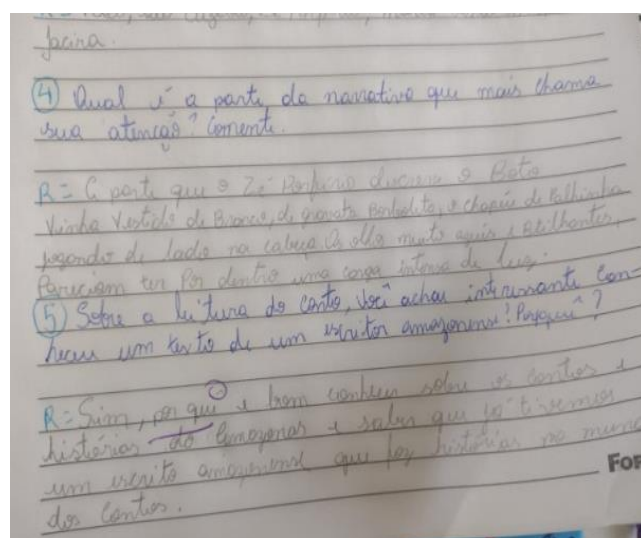 jacira.
4 Qual é a parte da narrativa que mais chama
sua atenção? Comente.
R= A parte que o Zé Porfirio descreve o Boto
Vinha Vestido de Branco, de gravata Borboleta, o chapéu de Palhinha
jogando de lado na cabeça. Os olho muito azuis e Brilhantes,
Pareciam ter Por dentro uma coisa intensa de luz.
5 Sobre a leitura do conto, você achou interessante con-
hecer um texto de um escritor amazonense? Porquê?
R= Sim, por que é bom conhecer sobre os contos e
histórias do Amazonas e saber que já tivemos
um escrito amazonense que fez histórias no mundo
dos contos.
FOR